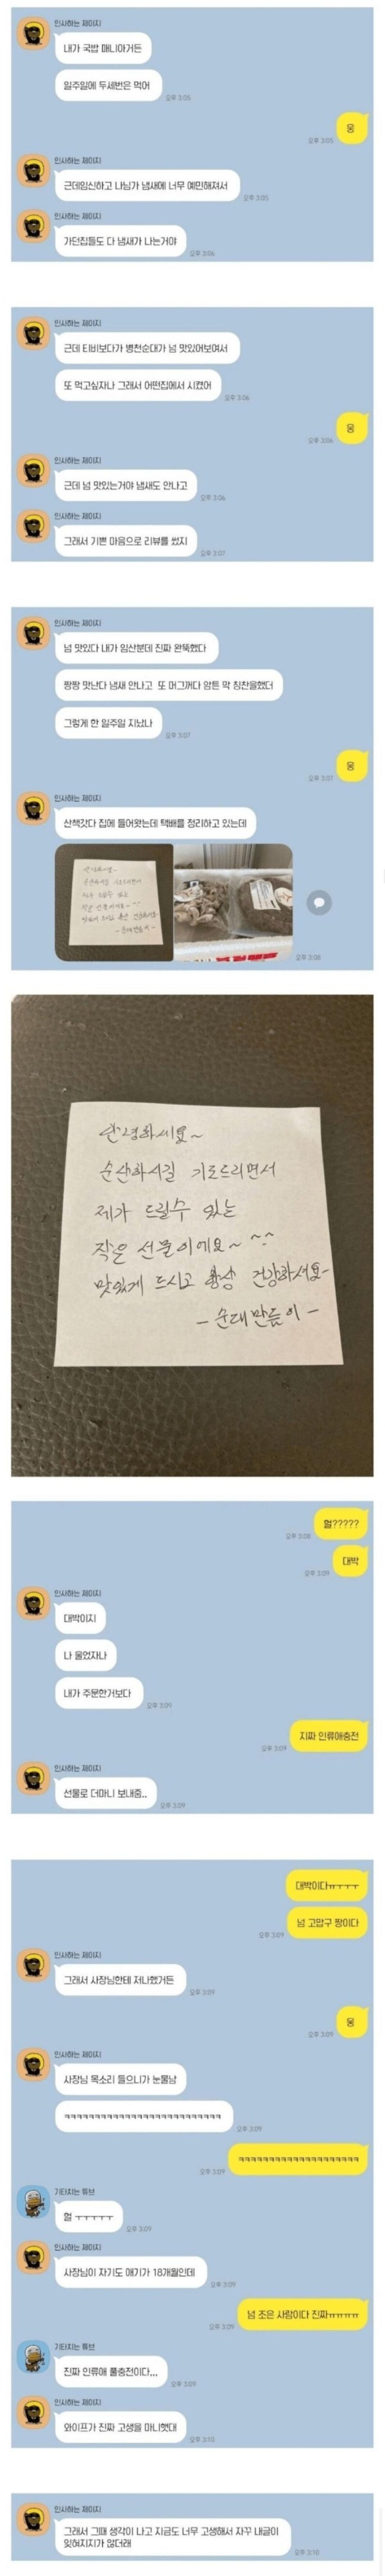 인사하는 제이지
내가 국밥 매니아거든
일주일에 두세번은 먹어
오후 3:05
웅
오후 3:05
인사하는 제이지
근데임신하고 나님가 냄새에 너무 예민해져서
오후 3:05
인사하는 제이지
가던집들도 다 냄새가 나는거야
오후 3:06
인사하는 제이지
근데 티비보다가 병천순대가 넘 맛있어보여서
또 먹고싶자나 그래서 어떤집에서 시켰어
오후 3:06
웅
오후 3:06
인사하는 제이지
근데 넘 맛있는거야 냄새도 안나고
오후 3:06
인사하는 제이지
그래서 기쁜 마음으로 리뷰를 썼지
오후 3:07
인사하는 제이지
넘 맛있다 내가 임산분데 진짜 완뚝했다
짱짱 맛난다 냄새 안나고 또 머그꺼다 암튼 막 칭찬을했더
그렇게 한 일주일 지났나
오후 3:07
웅
오후 3:07
인사하는 제이지
산책갓다 집에 들어왓는데 택배를 정리하고 있는데
오후 3:08
안녕하세요~
순산하시길 기도드리면서
제가 드릴수 있는
작은 선물이에요~ ^^
맛있게 드시고 항상 건강하세요-
- 순대만들이 -
헐?????
오후 3:08
대박
오후 3:09
인사하는 제이지
대박이지
나 울었자나
내가 주문한거보다
오후 3:09
지짜 인류애충전
오후 3:09
인사하는 제이지
선물로 더마니 보내중..
오후 3:09
대박이다ㅠㅜㅜㅜ
넘 고맙구 짱이다
오후 3:09
인사하는 제이지
그래서 사장님한테 저나했거든
오후 3:09
웅
오후 3:09
인사하는 제이지
사장님 목소리 들으니가 눈물남
ㅋㅋㅋㅋㅋㅋㅋㅋㅋㅋㅋㅋㅋㅋㅋㅋㅋㅋㅋㅋㅋㅋㅋㅋㅋㅋ
오후 3:09
ㅋㅋㅋㅋㅋㅋㅋㅋㅋㅋㅋㅋㅋㅋㅋㅋㅋㅋㅋㅋ
오후 3:09
기타치는 튜브
헐 ㅜㅜㅜㅜㅜ
오후 3:09
인사하는 제이지
사장님이 자기도 애기가 18개월인데
오후 3:09
넘 조은 사람이다 진짜ㅠㅠㅠㅠ
오후 3:09
기타치는 튜브
진짜 인류애 풀충전이다...
오후 3:09
인사하는 제이지
와이프가 진짜 고생을 마니햇대
오후 3:10
인사하는 제이지
그래서 그때 생각이 나고 지금도 너무 고생해서 자꾸 내글이
잊혀지지가 않더래
오후 3:10